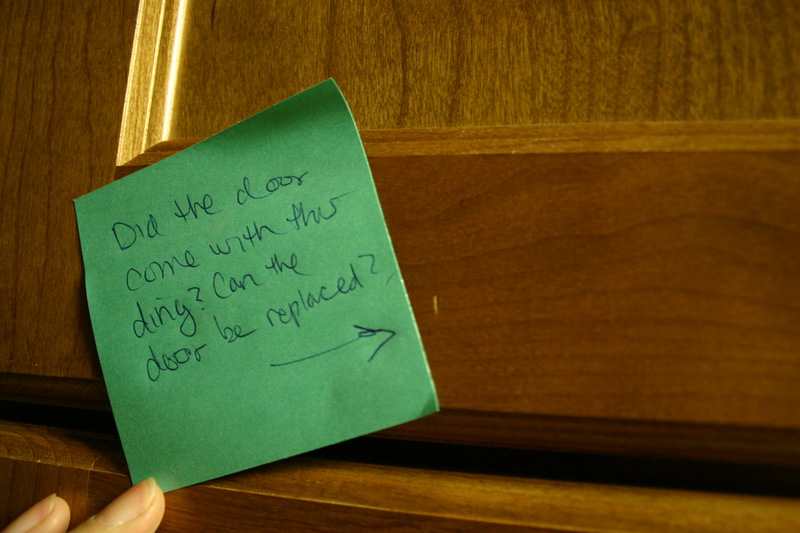 Did the door
come with this
ding? Can the
door be replaced?